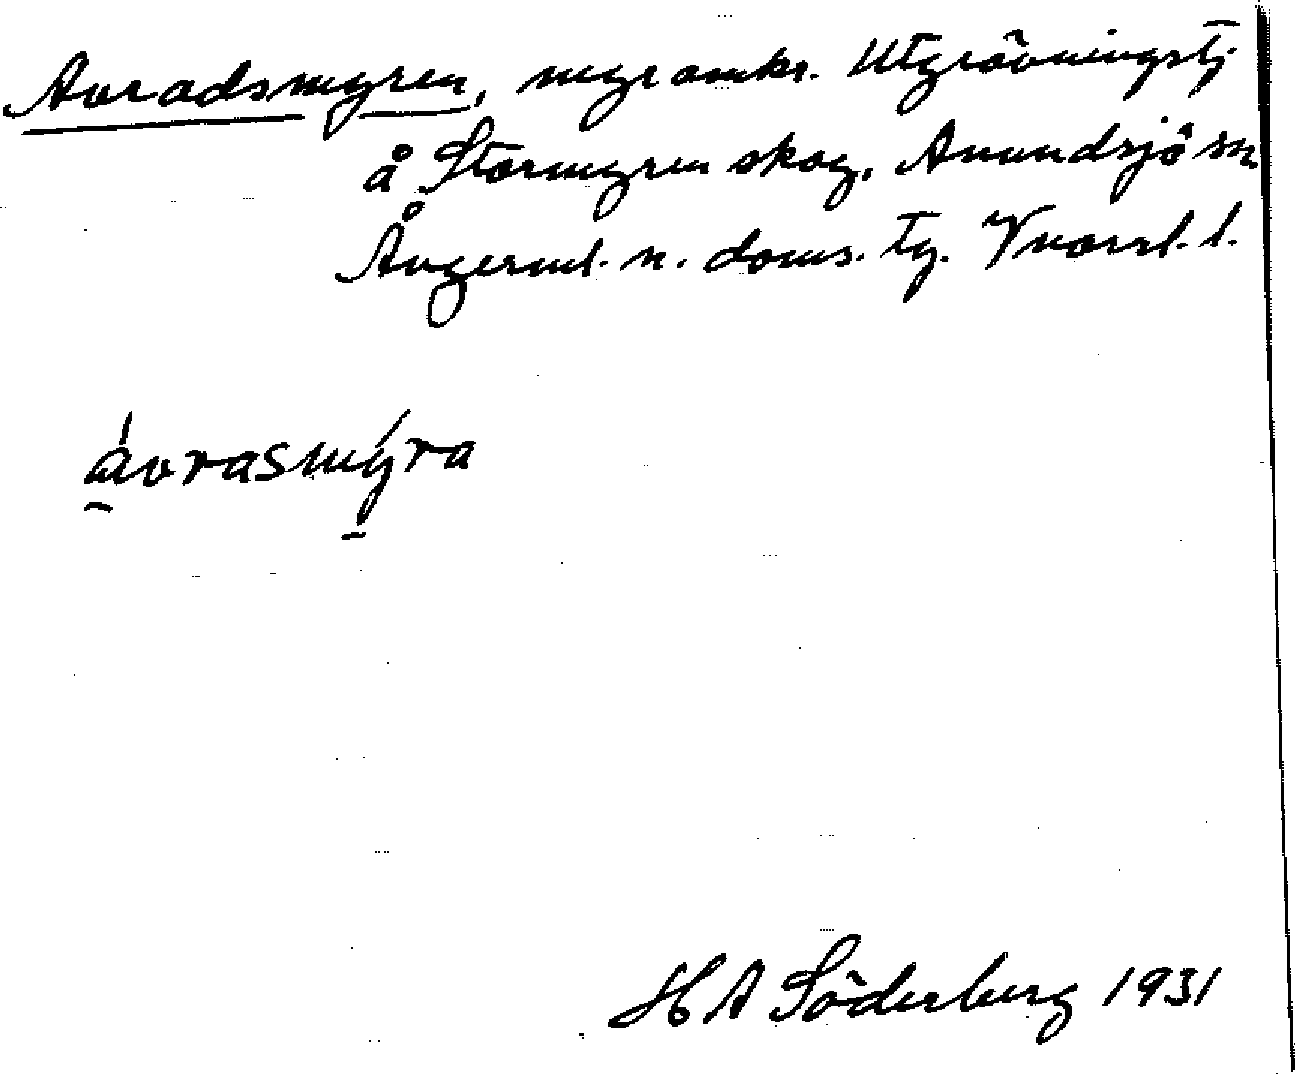 Avradsmyren, myr omkr. Utgrävningstj.
å Stormyren skog, Anundsjö sn
Ångerml. n. doms. tg. Vnorrl. l.
ávrasmýra
H A Söderberg 1931